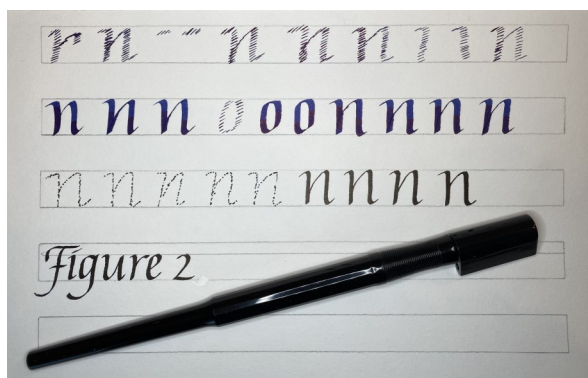 r n n n n n
n n n o o o n n n n
n n n n n n n n n
Figure 2